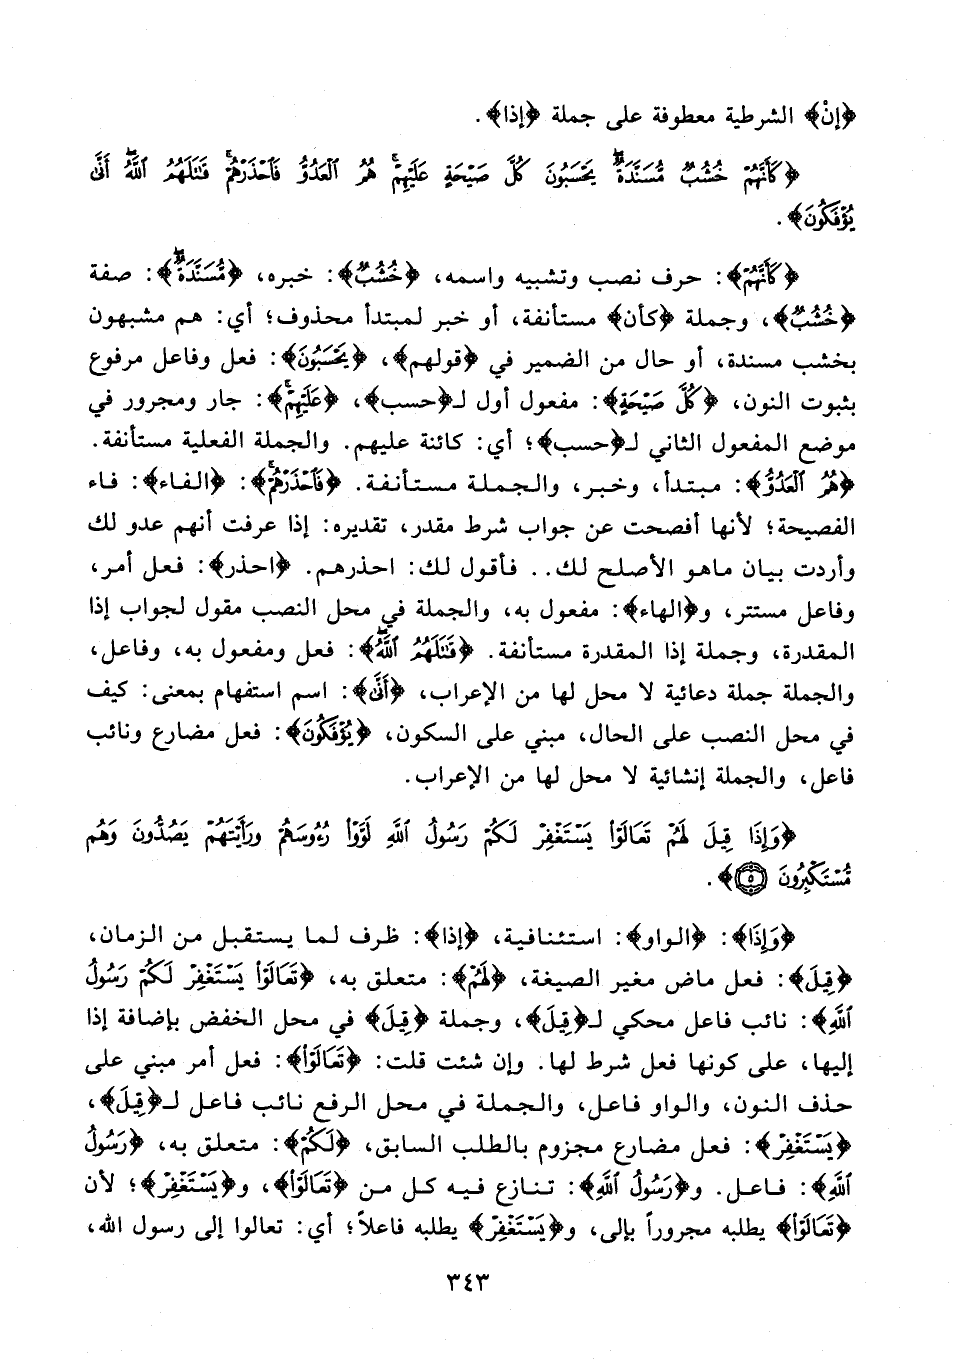 ﴿إِنْ﴾ الشرطية معطوفة على جملة ﴿إذا﴾.
﴿كَأَنَّهُمْ خُشُبٌ مُّسَنَّدَةٌ ۖ يَحْسَبُونَ كُلَّ صَيْحَةٍ عَلَيْهِمْ ۚ هُمُ ٱلْعَدُوُّ فَٱحْذَرْهُمْ ۚ قَٰتَلَهُمُ ٱللَّهُ ۖ أَنَّىٰ
يُؤْفَكُونَ﴾.
﴿كَأَنَّهُمْ﴾: حرف نصب وتشبيه واسمه، ﴿خُشُبٌ﴾: خبره، ﴿مُّسَنَّدَةٌ ۖ﴾: صفة
﴿خُشُبٌ﴾، وجملة ﴿كأن﴾ مستأنفة، أو خبر لمبتدأ محذوف؛ أي: هم مشبهون
بخشب مسندة، أو حال من الضمير في ﴿قولهم﴾، ﴿يَحْسَبُونَ﴾: فعل وفاعل مرفوع
بثبوت النون، ﴿كُلَّ صَيْحَةٍ﴾: مفعول أول لـ﴿حسب﴾، ﴿عَلَيْهِمْ ۚ﴾: جار ومجرور في
موضع المفعول الثاني لـ﴿حسب﴾؛ أي: كائنة عليهم. والجملة الفعلية مستأنفة.
﴿هُمُ ٱلْعَدُوُّ﴾: مبتدأ، وخبر، والجملة مستأنفة. ﴿فَٱحْذَرْهُمْ ۚ﴾: ﴿الفاء﴾: فاء
الفصيحة؛ لأنها أفصحت عن جواب شرط مقدر، تقديره: إذا عرفت أنهم عدو لك
وأردت بيان ماهو الأصلح لك.. فأقول لك: احذرهم. ﴿احذر﴾: فعل أمر،
وفاعل مستتر، و﴿الهاء﴾: مفعول به، والجملة في محل النصب مقول لجواب إذا
المقدرة، وجملة إذا المقدرة مستأنفة. ﴿قَٰتَلَهُمُ ٱللَّهُ ۖ﴾: فعل ومفعول به، وفاعل،
والجملة جملة دعائية لا محل لها من الإعراب، ﴿أَنَّىٰ﴾: اسم استفهام بمعنى: كيف
في محل النصب على الحال، مبني على السكون، ﴿يُؤْفَكُونَ﴾: فعل مضارع ونائب
فاعل، والجملة إنشائية لا محل لها من الإعراب.
﴿وَإِذَا قِيلَ لَهُمْ تَعَالَوْا۟ يَسْتَغْفِرْ لَكُمْ رَسُولُ ٱللَّهِ لَوَّوْا۟ رُءُوسَهُمْ وَرَأَيْتَهُمْ يَصُدُّونَ وَهُم
مُّسْتَكْبِرُونَ ۝٥﴾.
﴿وَإِذَا﴾: ﴿الواو﴾: استئنافية، ﴿إذا﴾: ظرف لما يستقبل من الزمان،
﴿قِيلَ﴾: فعل ماض مغير الصيغة، ﴿لَهُمْ﴾: متعلق به، ﴿تَعَالَوْا۟ يَسْتَغْفِرْ لَكُمْ رَسُولُ
ٱللَّهِ﴾: نائب فاعل محكي لـ﴿قِيلَ﴾، وجملة ﴿قِيلَ﴾ في محل الخفض بإضافة إذا
إليها، على كونها فعل شرط لها. وإن شئت قلت: ﴿تَعَالَوْا۟﴾: فعل أمر مبني على
حذف النون، والواو فاعل، والجملة في محل الرفع نائب فاعل لـ﴿قِيلَ﴾،
﴿يَسْتَغْفِرْ﴾: فعل مضارع مجزوم بالطلب السابق، ﴿لَكُمْ﴾: متعلق به، ﴿رَسُولُ
ٱللَّهِ﴾: فاعل. و﴿رَسُولُ ٱللَّهِ﴾: تنازع فيه كل من ﴿تَعَالَوْا۟﴾، و﴿يَسْتَغْفِرْ﴾؛ لأن
﴿تَعَالَوْا۟﴾ يطلبه مجروراً بإلى، و﴿يَسْتَغْفِرْ﴾ يطلبه فاعلاً؛ أي: تعالوا إلى رسول الله،
٣٤٣